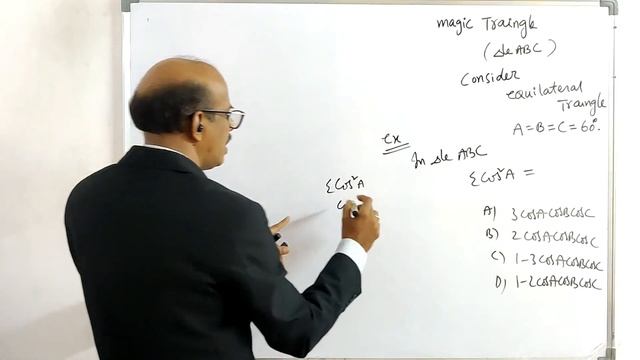 magic Traingle
(Δle ABC)
Consider
equilateral
Traingle
A=B=C=60°.
Ex
In Δle ABC
ΣCos²A =
ΣCos²A
A) 3CosACosBCosC
B) 2CosACosBCosC
C) 1-3CosACosBCosC
D) 1-2CosACosBCosC